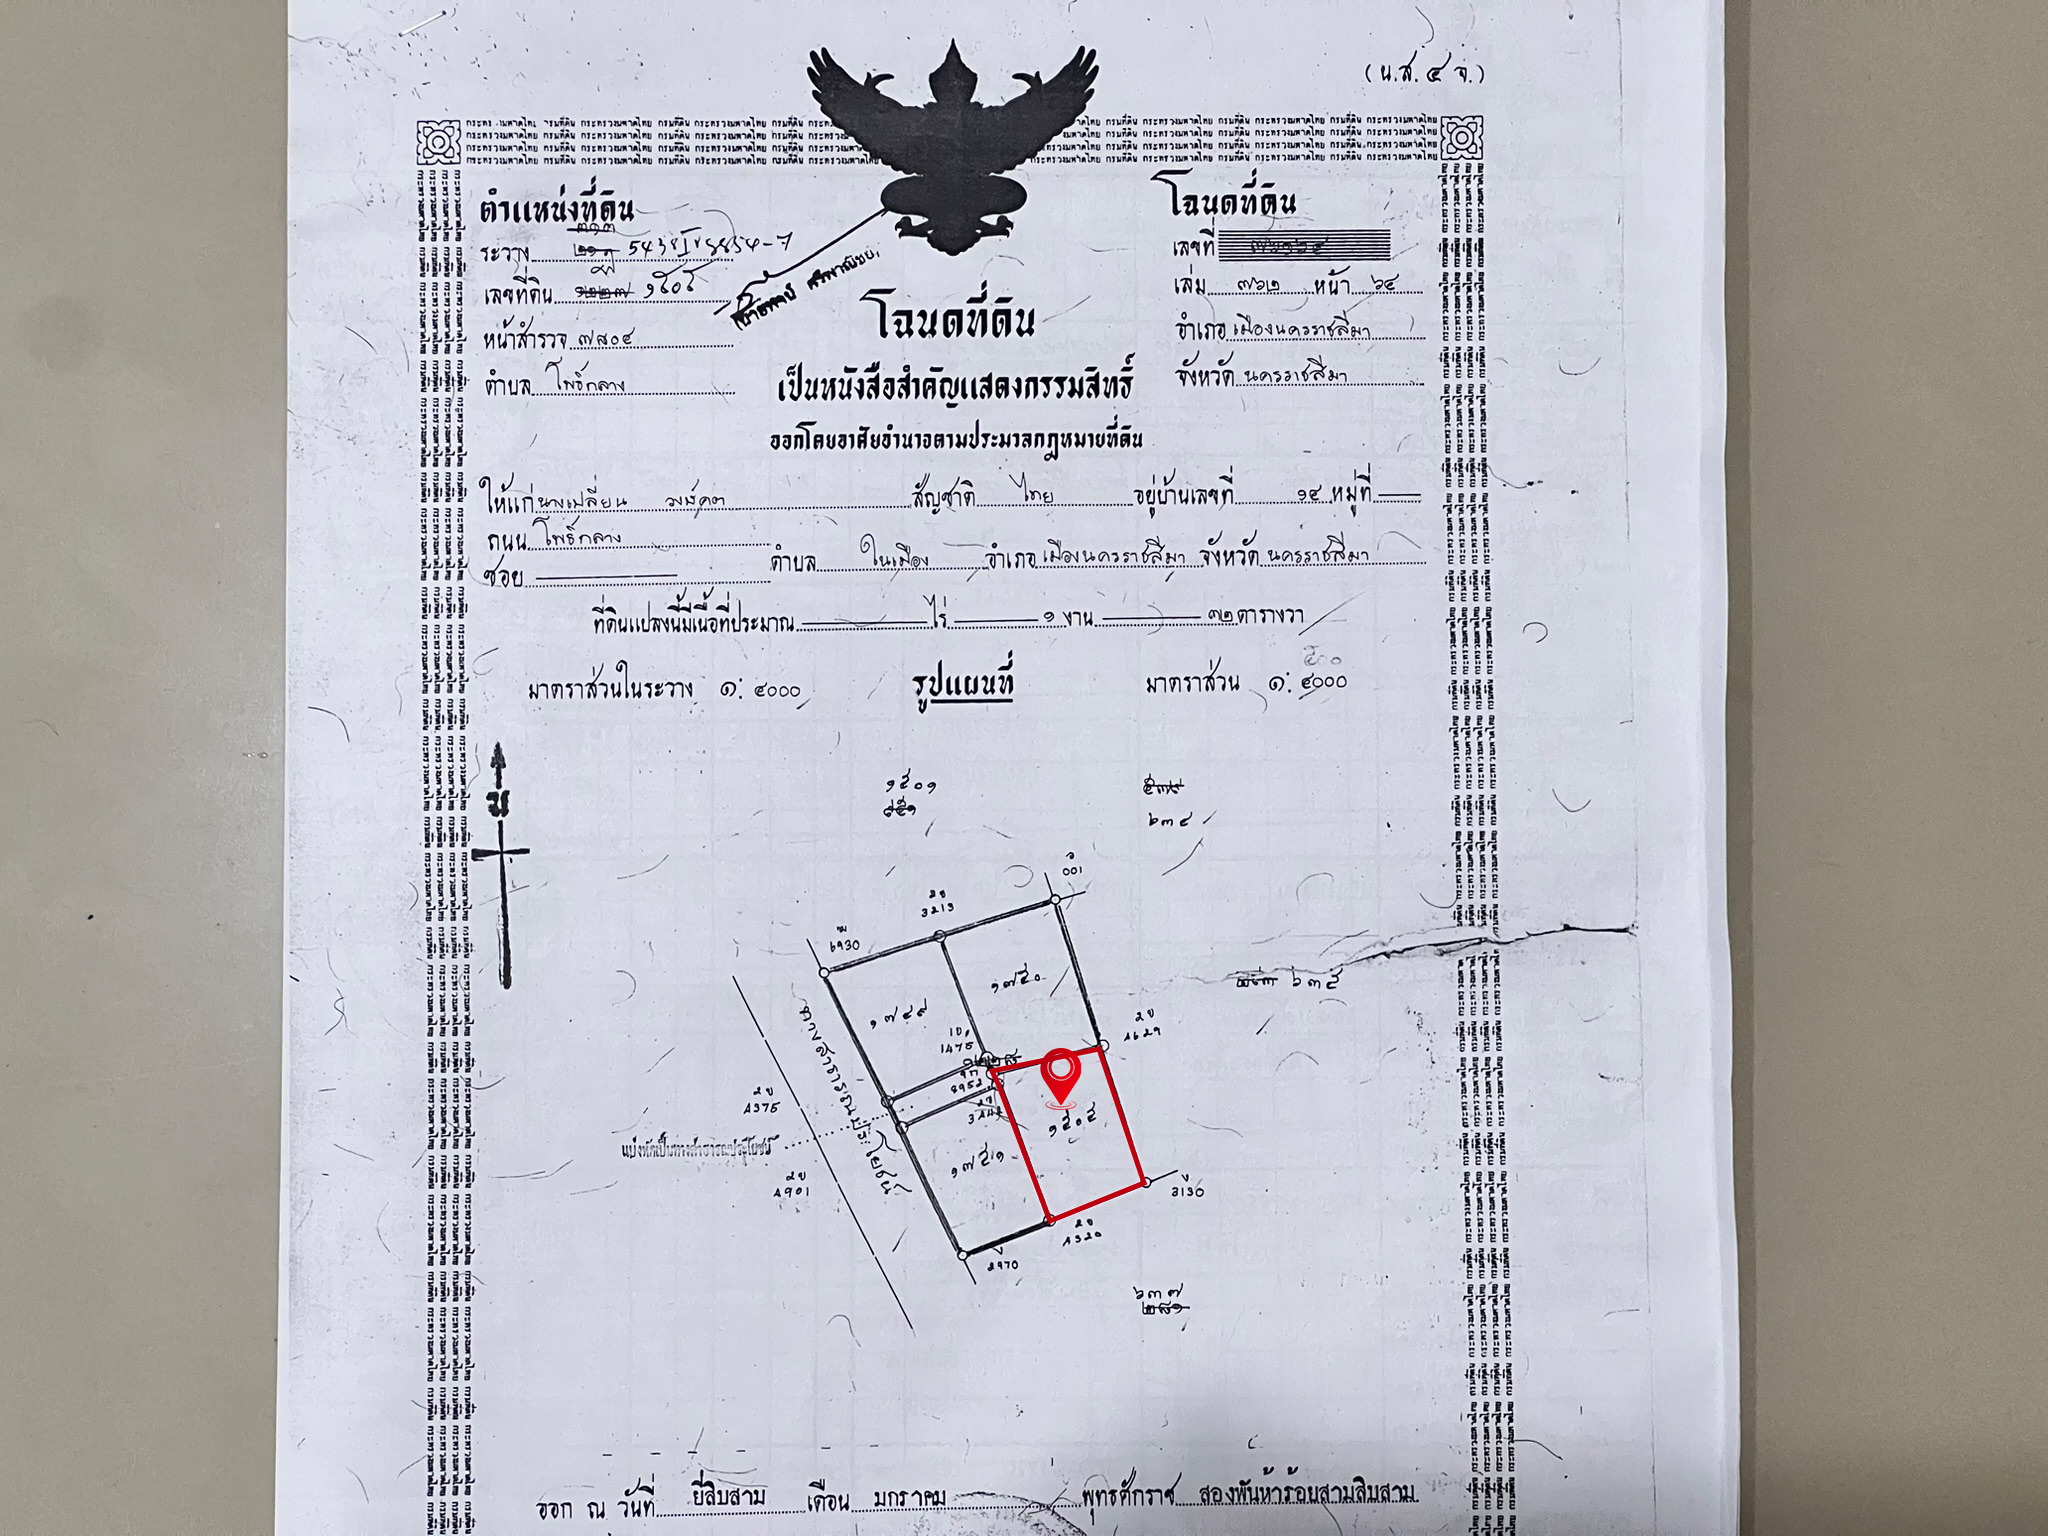 (น.ส. ๔ จ.)
ตำแหน่งที่ดิน
โฉนดที่ดิน
ระวาง
เลขที่
เลขที่ดิน ๑๕๐๕
เล่ม ๗๖๒ หน้า ๖๔
โฉนดที่ดิน
หน้าสำรวจ ๗๘๐๔
อำเภอ เมืองนครราชสีมา
ตำบล โพธิ์กลาง
เป็นหนังสือสำคัญแสดงกรรมสิทธิ์
จังหวัด นครราชสีมา
ออกโดยอาศัยอำนาจตามประมวลกฎหมายที่ดิน
ให้แก่ นางเปลี่ยน สัญชาติ ไทย อยู่บ้านเลขที่ ๑๔ หมู่ที่
ถนน โพธิ์กลาง
ซอย ตำบล ในเมือง อำเภอ เมืองนครราชสีมา จังหวัด นครราชสีมา
ที่ดินแปลงนี้มีเนื้อที่ประมาณ ไร่ ๑ งาน ๓๒ ตารางวา
มาตราส่วนในระวาง ๑: ๔๐๐๐
รูปแผนที่
มาตราส่วน ๑: ๔๐๐๐
น
๑๕๐๑
๖๓๔
001
2ข
3213
6930
๑๗๕๐
๖๓๕
๑๗๔๙
1475
2ข
4629
ทางสาธารณประโยชน์
8952
2ข
4375
๑๕๐๕
แบ่งหักเป็นทางสาธารณประโยชน์
๑๗๕๑
2ข
4901
3130
2ข
4320
2970
๖๓๗
ออก ณ วันที่ ยี่สิบสาม เดือน มกราคม พุทธศักราช สองพันห้าร้อยสามสิบสาม